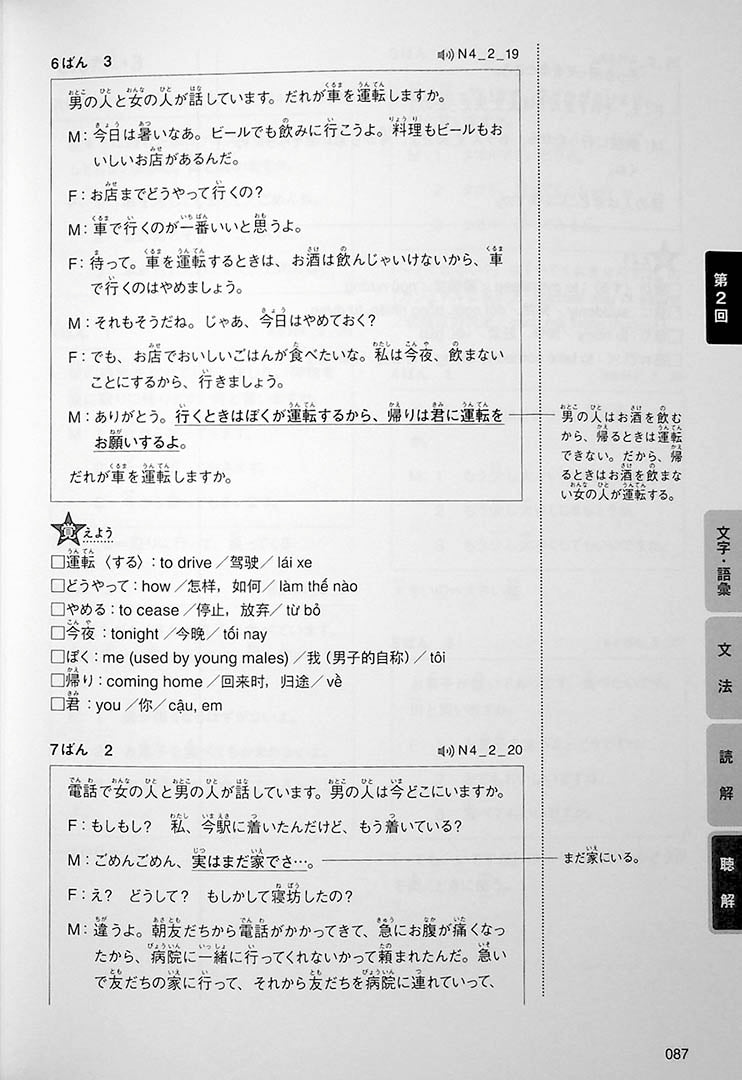 6ばん 3
N4_2_19
男の人と女の人が話しています。だれが車を運転しますか。
M：今日は暑いなあ。ビールでも飲みに行こうよ。料理もビールもお
いしいお店があるんだ。
F：お店までどうやって行くの？
M：車で行くのが一番いいと思うよ。
F：待って。車を運転するときは、お酒は飲んじゃいけないから、車
で行くのはやめましょう。
M：それもそうだね。じゃあ、今日はやめておく？
F：でも、お店でおいしいごはんが食べたいな。私は今夜、飲まない
ことにするから、行きましょう。
M：ありがとう。行くときはぼくが運転するから、帰りは君に運転を
お願いするよ。
だれが車を運転しますか。
男の人はお酒を飲む
から、帰るときは運転
できない。だから、帰
るときはお酒を飲まな
い女の人が運転する。
覚えよう
□運転〈する〉：to drive／驾驶／lái xe
□どうやって：how／怎样，如何／làm thế nào
□やめる：to cease／停止，放弃／từ bỏ
□今夜：tonight／今晚／tối nay
□ぼく：me (used by young males)／我（男子的自称）／tôi
□帰り：coming home／回来时，归途／về
□君：you／你／cậu, em
7ばん 2
N4_2_20
電話で女の人と男の人が話しています。男の人は今どこにいますか。
F：もしもし？ 私、今駅に着いたんだけど、もう着いている？
M：ごめんごめん、実はまだ家でさ…。
まだ家にいる。
F：え？ どうして？ もしかして寝坊したの？
M：違うよ。朝友だちから電話がかかってきて、急にお腹が痛くなっ
たから、病院に一緒に行ってくれないかって頼まれたんだ。急い
で友だちの家に行って、それから友だちを病院に連れていって、
第2回
文字・語彙
文法
読解
聴解
087